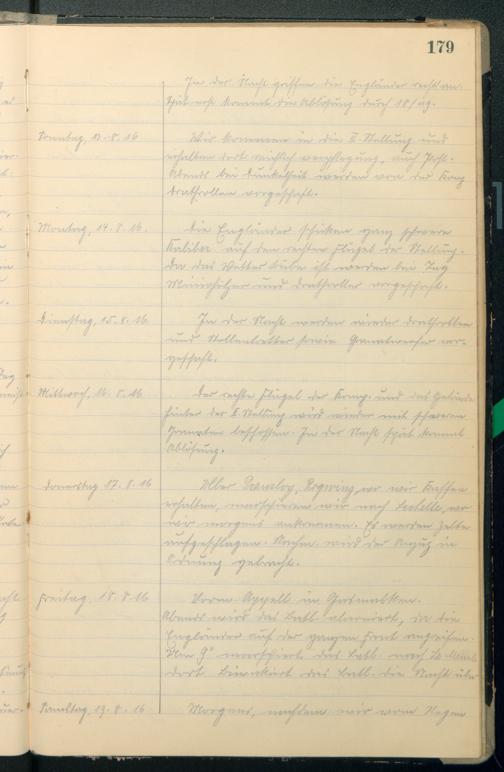 179
In der Nacht griffen die Engländer recht an.
Spät erst kommt die Ablösung durch 18/
Sonntag, 13.8.16
Wir kommen in die II. Stellung und
erhalten dort reichlich Verpflegung, auch Post.
Abends bei Dunkelheit werden von der Komp.
Drahtrollen vorgeschafft.
Montag, 14.8.16.
Die Engländer schicken ganz schwere
Kaliber auf den rechten Flügel der Stellung.
Da das Wetter trübe ist werden bei Tag
und Drahtrollen vorgeschafft.
Dienstag, 15.8.16
In der Nacht werden wieder Drahtrollen
und Stollenbretter sowie Granatwerfer vor-
geschafft.
Mittwoch, 16.8.16
Der rechte Flügel der Komp. und das Gelände
hinter der II. Stellung wird wieder mit schweren
Granaten beschossen. In der Nacht spät kommt
Ablösung.
Donnerstag 17.8.16
Über wo wir Kaffee
erhalten, marschieren wir nach wo
wir morgens ankommen. Es werden Zelte
aufgeschlagen. Nachm. wird der Anzug in
Ordnung gebracht.
Freitag, 18.8.16
Vorm. Appell in Gasmasken.
Abends wird das Batl. alarmiert, da die
Engländer auf der ganzen Front angreifen.
Um 9° marschiert das Batl. nach
dort das Batl. die Nacht über
Samstag 19.8.16
Morgens, nachdem wir vom Regen